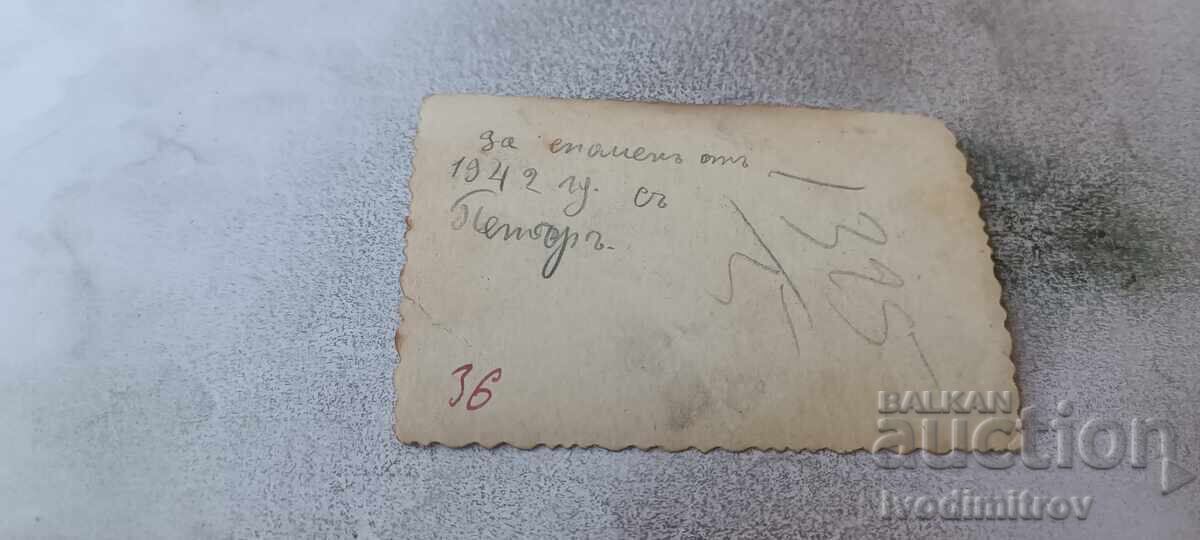 за споменъ отъ
1942 гд. съ
Петъръ.
1375
36
BALKAN
auction
Ivodimitrov